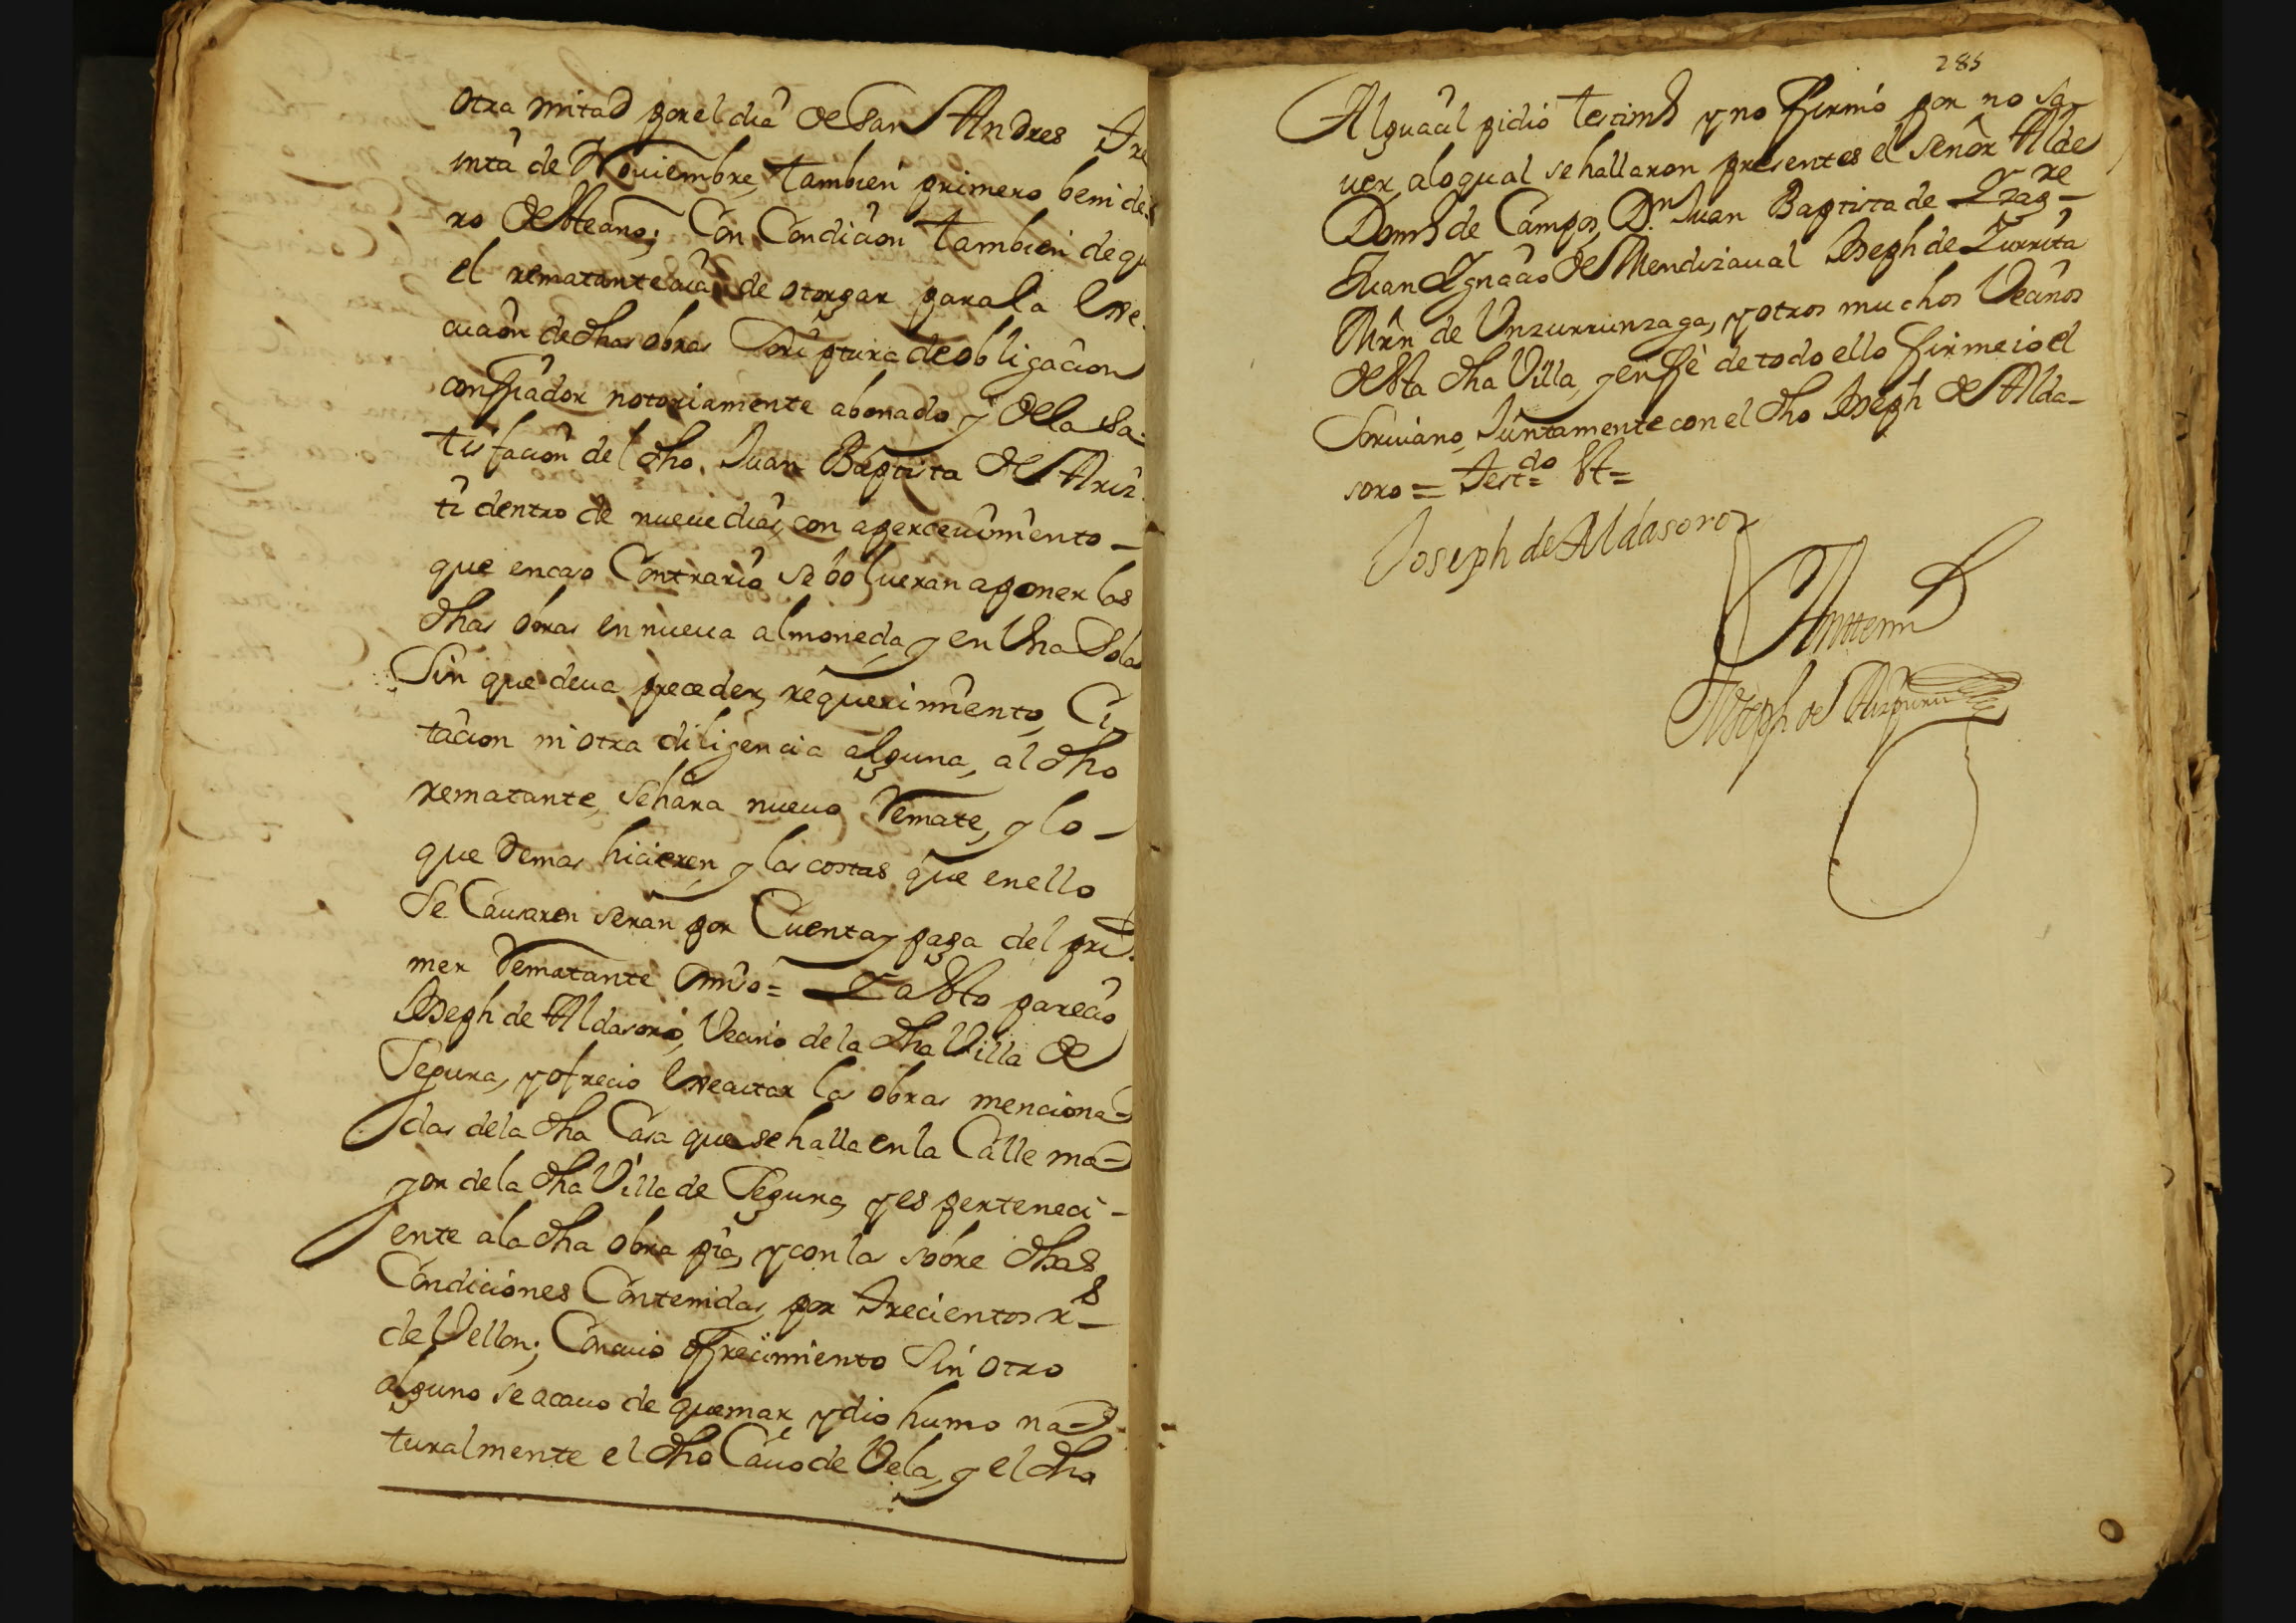 otra mitad por el dia de San Andres tre
inta de Nouiembre, tambien primero benide
ro deste año; Con Condicion tambien de qu
el rematante aia de otorgar para la exe
cucion de dhas obras Scriptura de obligacion
con fiador notoriamente abonado y de la sa
tisfacion del dho Juan Baptista de Ariz
ti dentro de nueue dias, con aperceuimiento
que en caso Contrario se bolueran a poner las
dhas obras en nueua almoneda, y en Una Sola
Sin que deua preceder, requerimiento, Ci
tacion ni otra diligencia alguna, al dho
rematante, se hara nueuo Remate, y lo
que demas hicieren y las costas que en ello
Se Causaren seran por Cuenta y paga del pri
mer Rematante omiso = Y a esto parecio
Joseph de Aldasoro, Vecino de la dha Villa de
Segura, y ofrecio executar las obras menciona
das de la dha Casa que se halla en la Calle ma
yor de la dha Villa de Segura, y es perteneci
ente a la dha obra pia, y con las sobre dhas
Condiciones Contenidas, por trecientos rs
de Vellon; Con cuio ofrecimiento Sin otro
alguno se acauo de quemar y dio humo na
turalmente el dho Cauo de Vela, y el dho
285
Alguacil pidio testimo y no firmo por no sa
uer, a lo qual se hallaron presentes el señor Alde
Domo de Campos, Dn Juan Baptista de Yzagre
Juan Ygnacio de Mendizaual Joseph de Zurrita
Mrn de Unzurrunzaga, y otros muchos Vecinos
desta dha Villa, y en fe de todo ello firme io el
Scriuano, Juntamente con el dho Joseph de Alda
soro = testdo st =
Joseph de Aldasoro
Ante mi
Joseph de Aizpuru